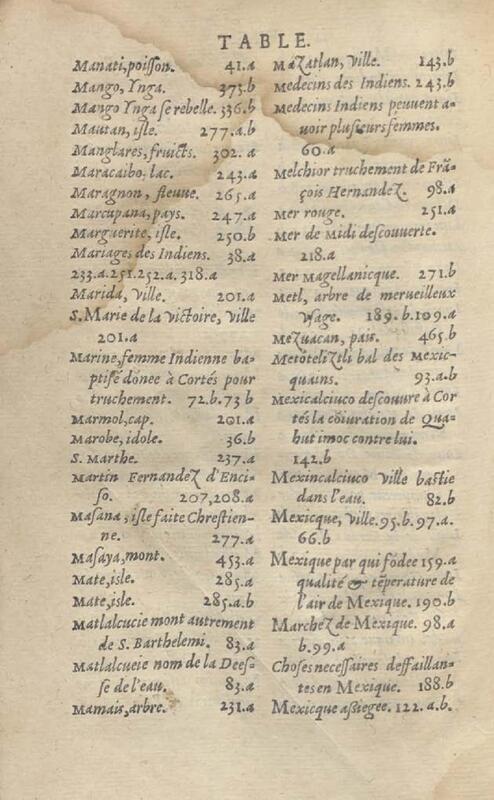 TABLE.
Manati, poisson. 41.a
Mango, Ynga. 373.b
Mango Ynga se rebelle. 336.b
Mautan, isle. 277.a.b
Manglares, fruicts. 302. a
Maracaibo, lac. 243.a
Maragnon, fleuve. 265.a
Marcupana, pays. 247.a
Marguerite, isle. 250.b
Mariages des Indiens. 38.a
233.a.251.252.a.318.a
Marida, ville. 201.a
S. Marie de la victoire, ville
201.a
Marine, femme Indienne ba-
ptisé dõnee à Cortés pour
truchement. 72.b.73 b
Marmol, cap. 201.a
Marobe, idole. 36.b
S. Marthe. 237.a
Martin Fernandez d'Enci-
so. 207,208.a
Masana, isle faite Chrestien-
ne. 277.a
Masaya, mont. 453.a
Mate, isle. 285.a
Mate, isle. 285.a.b
Matlalcucie mont autrement
de S. Barthelemi. 83.a
Matlalcueie nom de la Dees-
se de l'eau. 83.a
Mamais, arbre. 231.a
Mazatlan, ville. 143.b
Medecins des Indiens. 243.b
Medecins Indiens peuvent a-
voir plusieurs femmes.
60.a
Melchior truchement de Frã-
çois Hernandez. 98.a
Mer rouge. 251.a
Mer de Midi descouverte.
218.a
Mer Magellanicque. 271.b
Metl, arbre de merveilleux
vsage. 189.b.109.a
Mezuacan, pais. 465.b
Metôteliztli bal des Mexic-
quains. 93.a.b
Mexicalciuco descouvre à Cor
tés la cõiuration de Qua-
hutimoc contre lui.
142.b
Mexincalciuco ville bastie
dans l'eau. 82.b
Mexicque, ville. 95.b.97.a.
66.b
Mexique par qui fõdee 159.a
qualité & tẽperature de
l'air de Mexique. 190.b
Marchez de Mexique. 98.a
b.99.a
Choses necessaires deffaillan-
tes en Mexique. 188.b
Mexicque assiegee. 122.a.b.